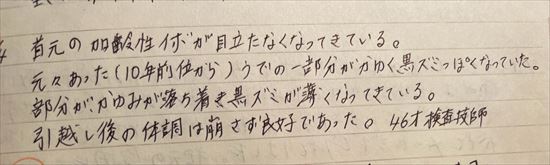 首元の加齢性イボが目立たなくなってきている。
元々あった(10年前位から)うでの一部分がかゆく黒ズミっぽくなっていた。
部分が、かゆみが落ち着き黒ズミが薄くなってきている。
引越し後の体調は崩さず良好であった。 46才検査技師